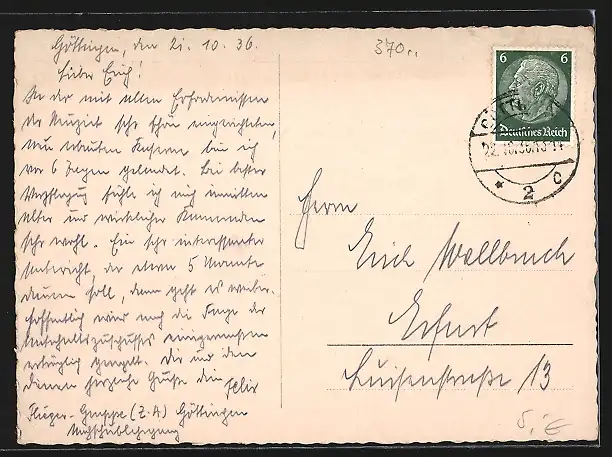 Göttingen, den 21.10.36.
370,,
Lieber Erich!
In der mit allen Erfordernissen
der Neuzeit sehr schön eingerichteten,
neu erbauten Kaserne bin ich
vor 6 Tagen gelandet. Bei bester
Verpflegung fühle ich mich inmitten
alter und wirklicher Kameraden
sehr wohl. Ein sehr interessanter
Unterricht, der etwa 5 Monate
dauern soll, dann geht es weiter.
Hoffentlich wird noch die Frage der
Unterhaltszuschusses einigermaßen
erträglich geregelt. Dir und den
Deinen herzliche Grüße Dein Felix
Flieger-Gruppe (Z.A) Göttingen
6 6
Deutsches Reich
22.10.36.13-14
* 2 c
Herrn
Erich Wallbruch
Erfurt
Luisenstraße 13
5,-€